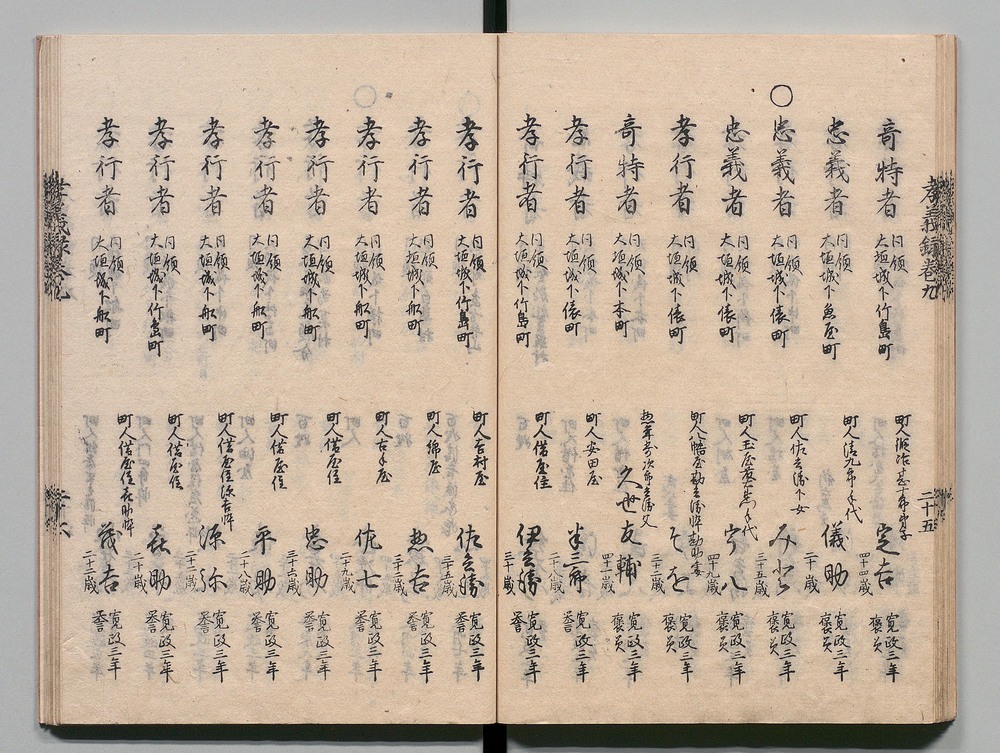 孝義録巻九
二十五
竒特者 同領 大垣城下竹島町 定吉 四十歳 寛政三年 褒美
忠義者 同領 大垣城下魚屋町 儀助 二十歳 寛政三年 褒美
○忠義者 同領 大垣城下俵町 町人佐吉衛下女 三十五歳 寛政三年 褒美
忠義者 同領 大垣城下俵町 町人玉屋 手代 宇八 四十九歳 寛政三年 褒美
孝行者 同領 大垣城下俵町 三十三歳 寛政三年 褒美
竒特者 同領 大垣城下本町 久世友輔 四十二歳 寛政三年 褒美
孝行者 同領 大垣城下俵町 町人安田屋 半三郎 二十八歳 寛政三年 誉
孝行者 同領 大垣城下竹島町 町人借屋住 伊兵衛 三十歳 寛政三年 誉
孝行者 同領 大垣城下竹島町 町人吉村屋 佐兵衛 三十五歳 寛政三年 誉
孝行者 同領 大垣城下船町 町人綿屋 惣吉 三十二歳 寛政三年 誉
○孝行者 同領 大垣城下船町 町人古手屋 佐七 二十九歳 寛政三年 誉
孝行者 同領 大垣城下船町 町人 忠助 三十六歳 寛政三年 誉
孝行者 同領 大垣城下船町 町人借屋住 平助 二十八歳 寛政三年 誉
孝行者 同領 大垣城下船町 町人借屋住源吉悴 源弥 二十二歳 寛政三年 誉
孝行者 同領 大垣城下竹島町 町人借屋住 喜助 二十歳 寛政三年 誉
孝行者 同領 大垣城下船町 町人借屋住喜助悴 茂吉 二十歳 寛政三年 誉
孝義録巻九
二十六